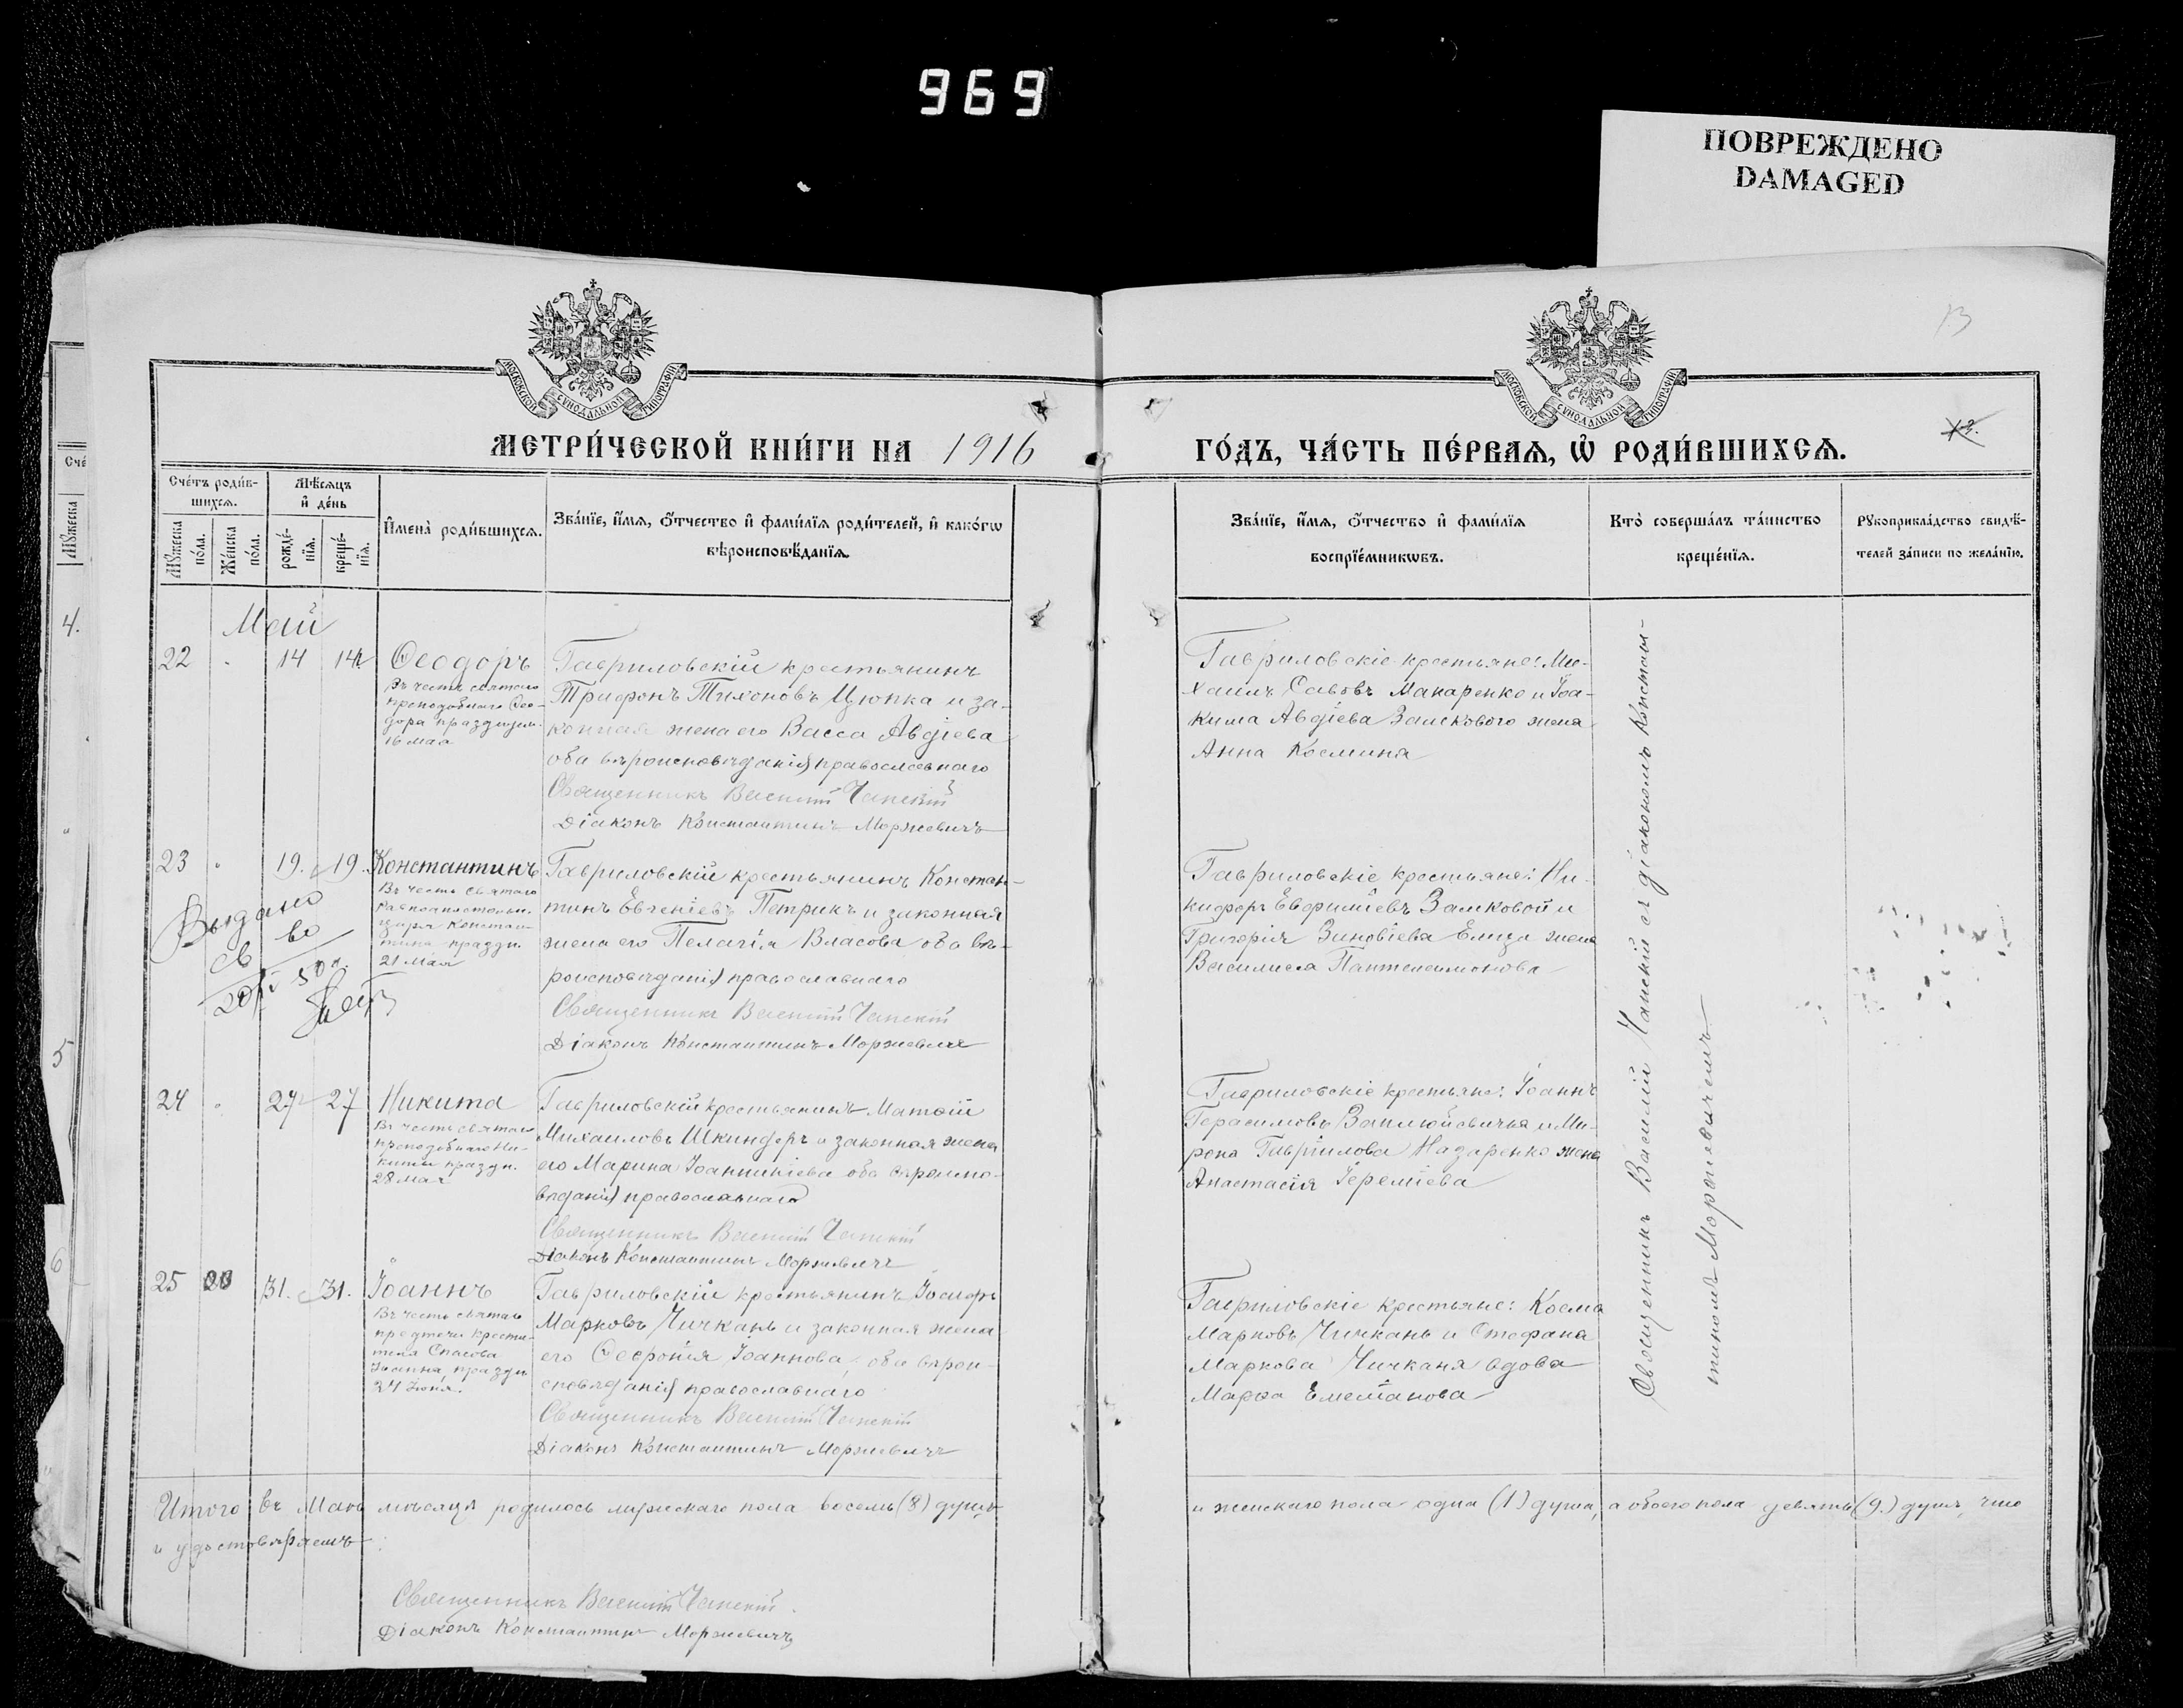 969
ПОВРЕЖДЕНО
DAMAGED
МОСКОВСКОЙ СУНОДАЛЬНОЙ ТИПОГРАФІИ
МОСКОВСКОЙ СУНОДАЛЬНОЙ ТИПОГРАФІИ
13
МЕТРИ́ЧЕСКОЙ КНИ́ГИ НА 1916
ГО́ДЪ, ЧА́СТЬ ПЕ́РВАЯ, Ѡ҆ РОДИ́ВШИХСѦ.
Сче́тъ роди́в-
шихсѧ.
Мѣ́сѧцъ
и҆ де́нь
Мꙋ́жеска
по́ла.
Же́нска
по́ла.
рожде́-
нїѧ.
креще́-
нїѧ.
И҆мена̀ роди́вшихсѧ.
Зва́нїе, и҆́мѧ, ѻ҆́тчество и҆ фами́лїѧ роди́телей, и҆ како́гѡ
вѣроисповѣ́данїѧ.
Зва́нїе, и҆́мѧ, ѻ҆́тчество и҆ фами́лїѧ
воспрїе́мникѡвъ.
Кто̀ соверша́лъ та́инство
креще́нїѧ.
Рꙋкоприкла́дство свидѣ́-
телей за́писи по жела́нїю.
Май
22
14
14
Ѳеодоръ
Въ честь святаго
преподобнаго Ѳео-
дора празднуем.
16 мая
Гавриловскій крестьянинъ
Трифонъ Тихоновъ Цюпка и за-
конная жена его Васса Авдіева
оба вѣроисповѣданія православнаго
Священникъ Василій Чапскій
Діаконъ Константинъ Моржевичъ
Гавриловскіе крестьяне: Ми-
хаилъ Савовъ Макаренко и Іоа-
кима Авдіева Замкового жена
Анна Космина
23
19.
19.
Константинъ
Въ честь святаго
Равноапостольн.
царя Констан-
тина праздн.
21 Мая
Гавриловскій крестьянинъ Констан-
тинъ Евгеніевъ Петрикъ и законная
жена его Пелагія Власова оба вѣ-
роисповѣданія православнаго
Священникъ Василій Чапскій
Діаконъ Константинъ Моржевичъ
Гавриловскіе крестьяне: Ни-
кифоръ Евфиміевъ Замковой и
Григорія Зиновіева Елиза жена
Василисса Пантелеимонова
Выдано
св во
24
27
27
Никита
Въ честь святаго
преподобнаго Ни-
киты праздн.
28 мая
Гавриловскій крестьянинъ Матѳій
Михаиловъ Шкиндеръ и законная жена
его Марина Іоанникіева оба вѣроиспо-
вѣданія православнаго
Священникъ Василій Чапскій
Діаконъ Константинъ Моржевичъ
Гавриловскіе крестьяне: Іоаннъ
Герасимовъ и Ми-
рона Гавріилова Назаренко жена
Анастасія Іереміева
25
31.
31.
Іоаннъ
Въ честь святаго
предтечи крести-
теля Спасова
Іоанна, праздн
24 Іюня.
Гавриловскій крестьянинъ Іосифъ
Марковъ Чичкань и законная жена
его Ѳеѳронія Іоаннова, оба вѣрои-
сповѣданія православнаго
Священникъ Василій Чапскій
Діаконъ Константинъ Моржевичъ
Гавриловскіе крестьяне: Косма
Марковъ Чичкань и Стефана
Маркова Чичканя вдова
Марѳа Емеліанова
Священникъ Василій Чапскій съ діакономъ Констан-
тиномъ Моржевичемъ
Итого въ Маѣ мѣсяцѣ родилось мужескаго пола восемь (8) душъ
и женскаго пола одна (1) душа, а обоего пола девять (9.) душъ, что
и удостовѣряемъ:
Священникъ Василій Чапскій.
Діаконъ Константинъ Моржевичъ
4.
5
6